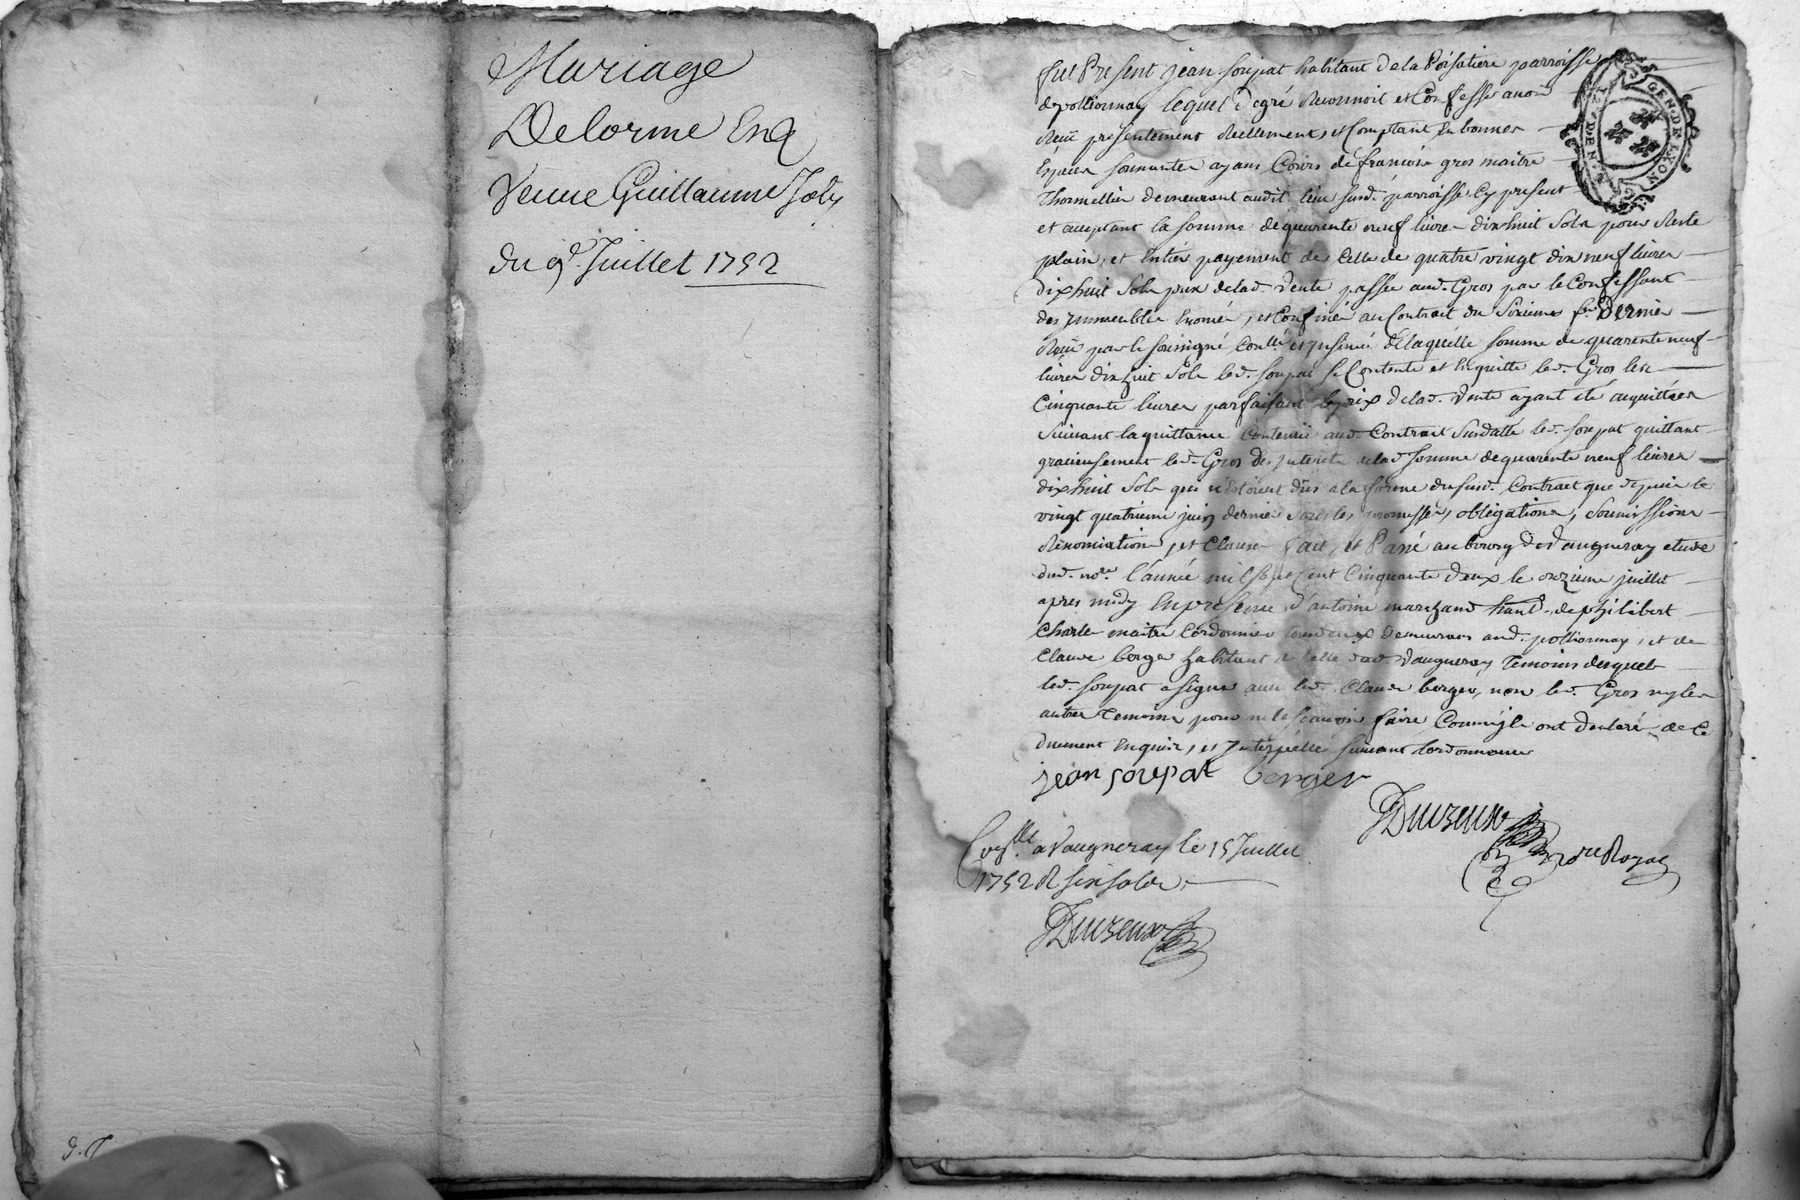 Mariage
Delorme Enq
Veuve Guillaume Joly
du 9e. Juillet 1752
d. J
GEN. DE LYON
fut Present jean soupat habitant de la Poisatiere parroisse
depollionnay lequel degré Reconnoit et Confesse avoir
Reçû présentement Réellement, et Comptant En bonnes
Espèces sonnantes ayans Cours de françois gros maitre
Thonnellier demeurant audit lieu susd. parroisse, Cy present
et acceptant la somme dequarente neuf livres dixhuit Sols pour Reste
plain, et Entier payement de Celle de quatre vingt dix neuf livres
dixhuit Sols prix delad. Vente passée aud. Gros par le Confessant
des jmmeubles , et Confinés au Contrat du Sixieme dernier
Reçû par le soussigné Conllé et jnsinué delaquelle somme de quarente neuf
livres dixhuit Sols led. soupat se Contente et En quitte led. Gros les
Cinquante livres parfaisant leprix delad. Vente ayant été acquittées
Suivant la quittance Contenüe aud. Contrat Susdatté led. soupat quittant
gracieusement led. Gros des jnterets delad. somme dequarente neuf livres
dixhuit Sols qui n'étoient dûs a la forme dususd. Contrat que depuis le
vingt quatrieme juin dernier Sous les promesses, obligations, Soumissions
Rénonciation, et Clauses fait, et Passé au bourg de Vaugneray etude
dud. nore. l'année mil sept Cent Cinquante deux le onzieme juillet
apres midy En présence d'antoine marchand de philibert
Charle maitre Cordonnier tous deux demeurans aud. pollionnay, et de
Claude berger habitant de Celle dud Vaugneray Temoins desquels
led. soupat a signé avec led. Claude berger, non led. Gros ny les
autres Temoins pour ne le scavoir faire Comme jls ont declaré de Ce
duement Enquis, et jnterpellés suivant lordonnance
jean soupat berger
Duizeux
nore Royal
Conllé a Vaugneray le 15 Juillet
1752 R six sols
Duizeux